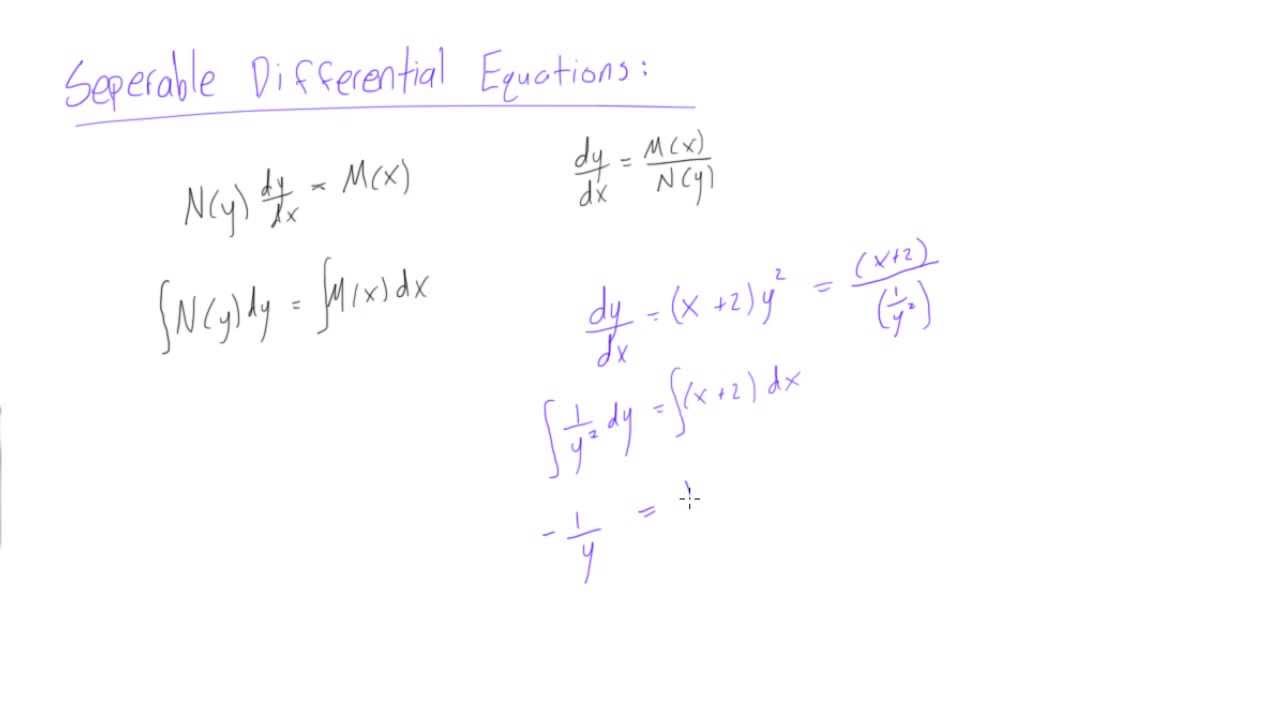 Seperable Differential Equations:
N(y) dy/dx = M(x)
dy/dx = M(x)/N(y)
∫N(y)dy = ∫M(x)dx
dy/dx = (x+2)y² = (x+2)/(1/y²)
∫1/y² dy = ∫(x+2) dx
-1/y =